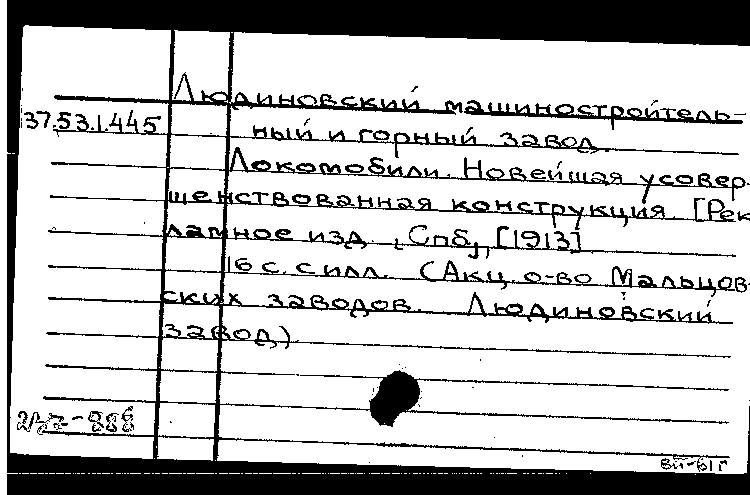 Людиновский машиностроитель-
37.53.1.445 ный и горный завод.
Локомобили. Новейшая усовер-
шенствованная конструкция. [Рек
ламное изд. [Спб], [1913]
16 с. с илл. (Акц. о-во Мальцов-
ских заводов. Людиновский
завод)